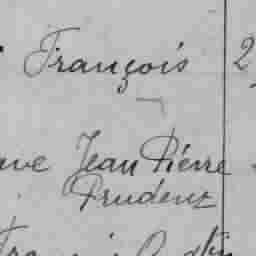 François 2
uve Jean Pierre
Prudent